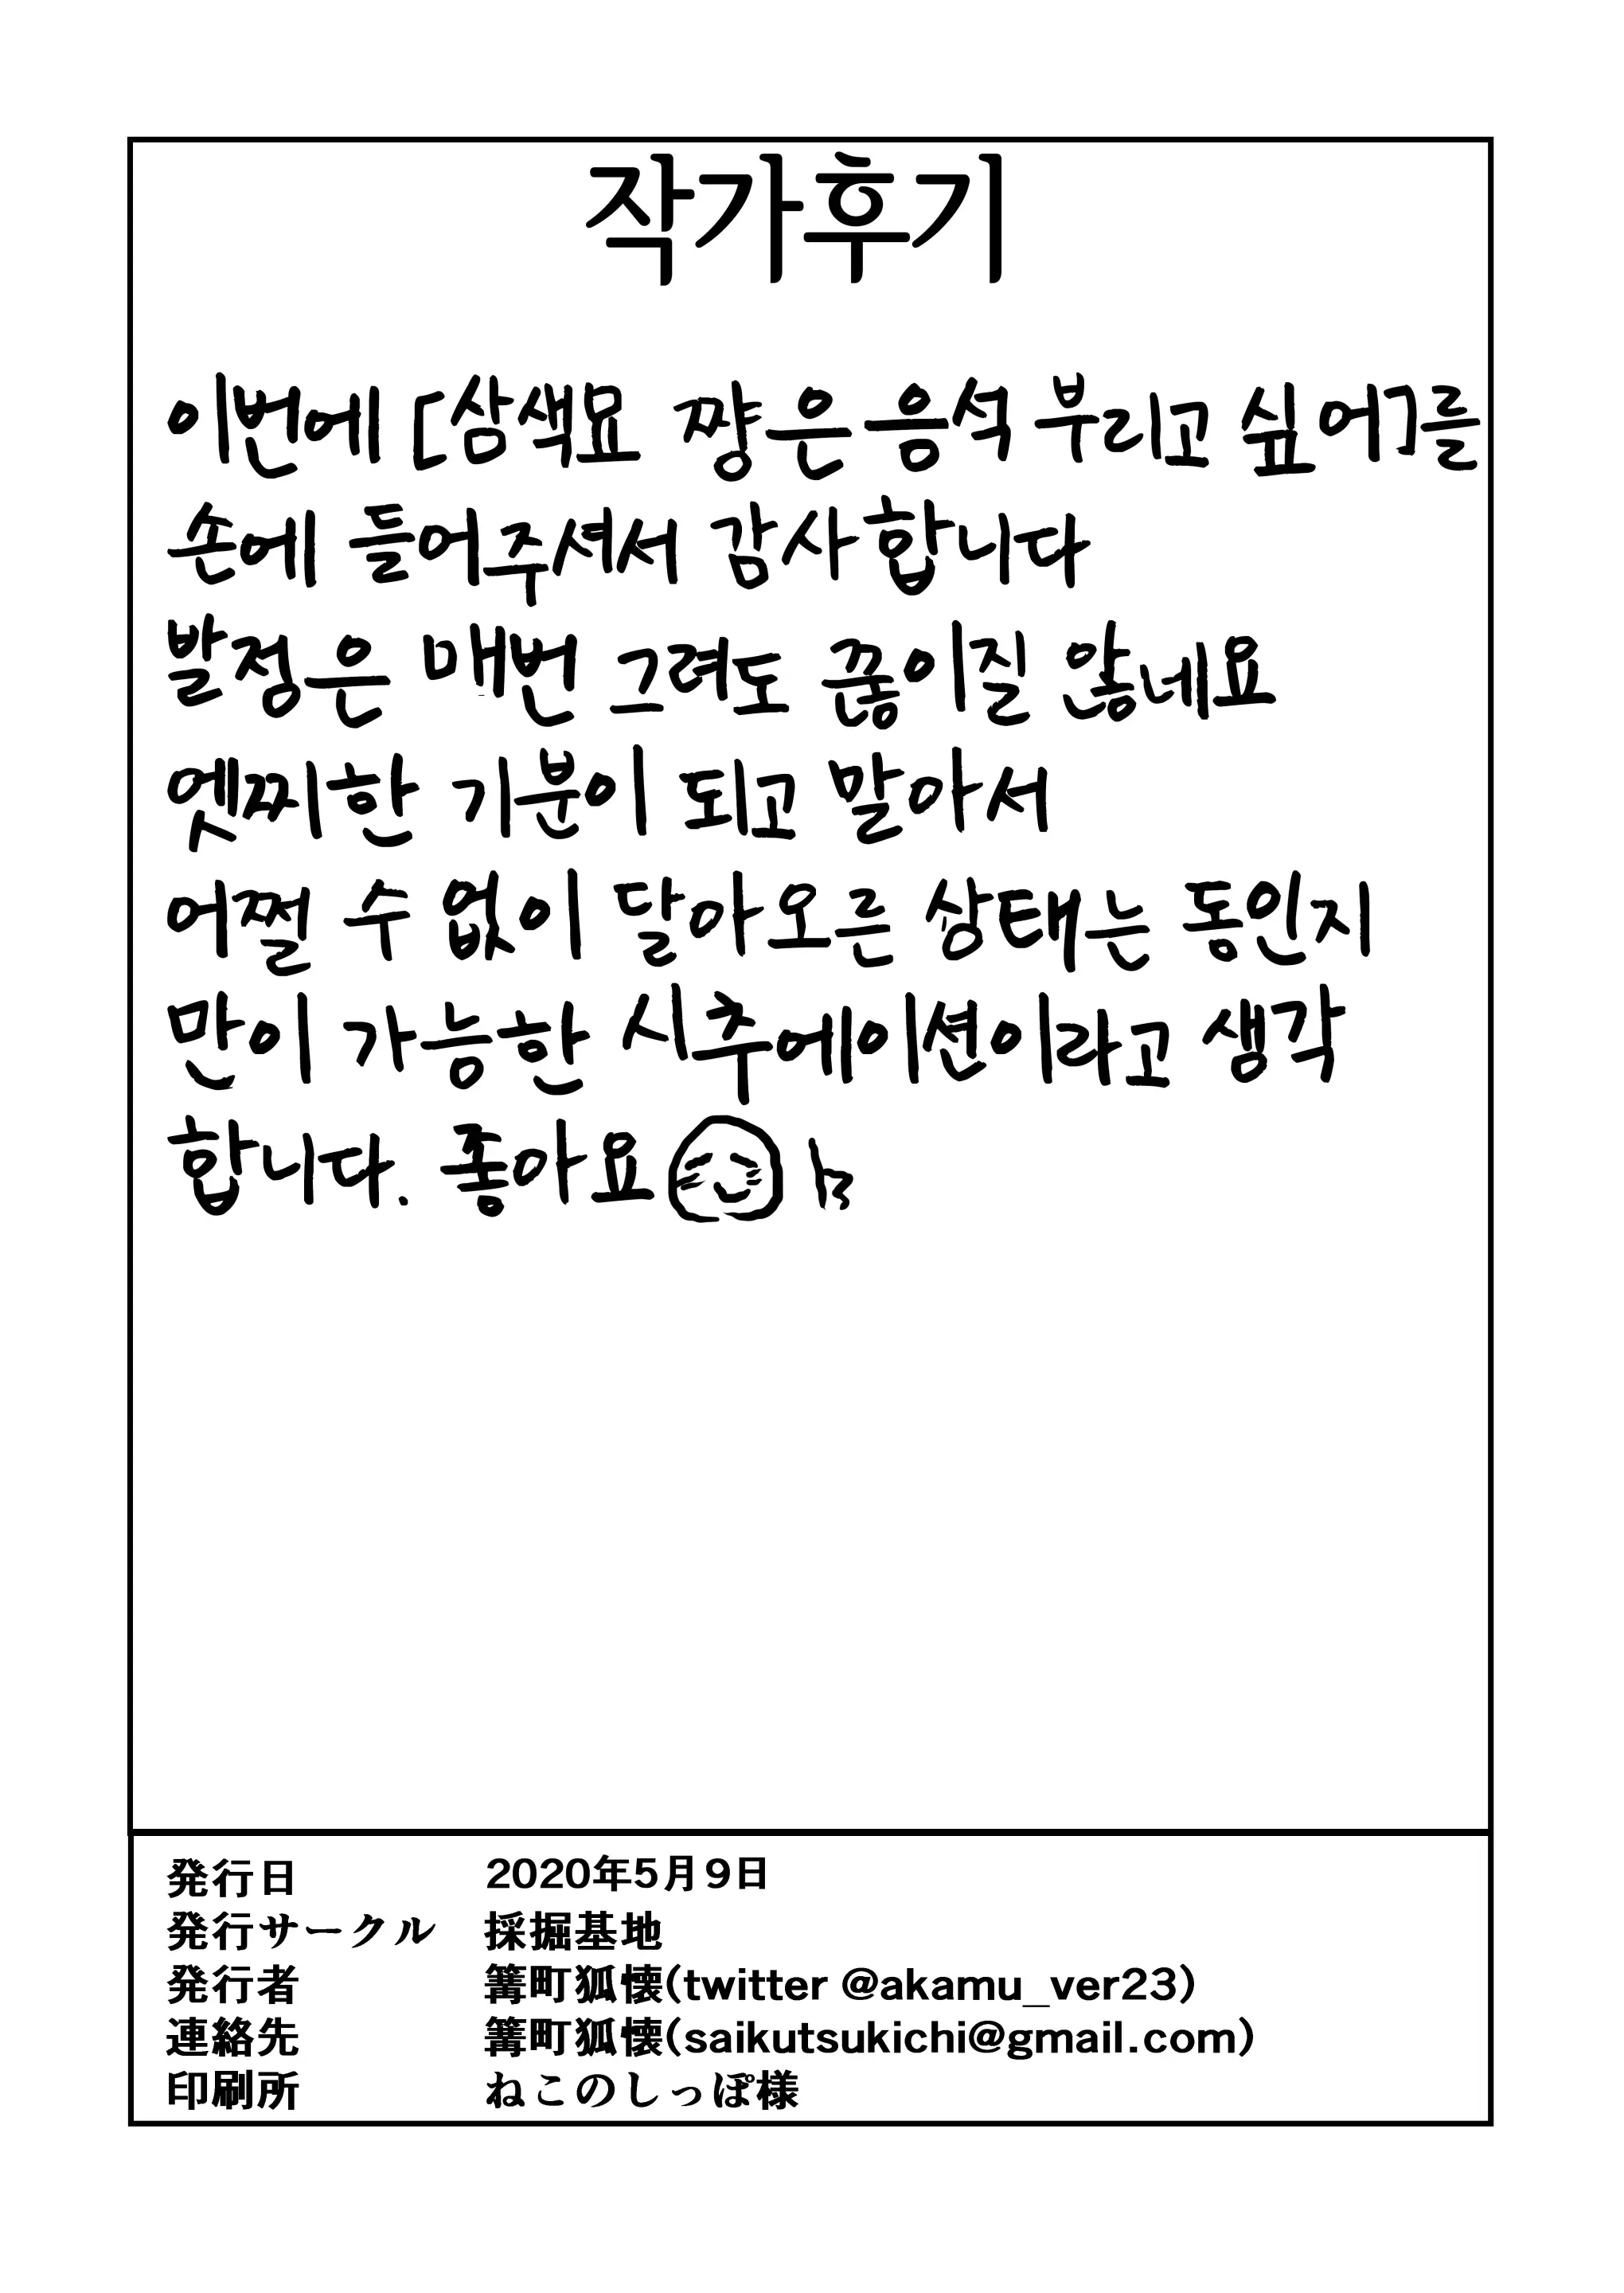 작가후기
이번에 [삼색묘 쨩은 응석 부리고 싶어]를
손에 들어주셔서 감사합니다
발정은 매번 그려도 끊이질 않네요
엣찌한 기분이 되고 말아서
어쩔 수 없이 달아오른 상태는 동인지
만이 가능한 시추에이션이라고 생각
합니다. 좋아요
発行日 2020年5月9日
発行サークル 採掘基地
発行者 篝町狐懐(twitter @akamu_ver23)
連絡先 篝町狐懐(saikutsukichi@gmail.com)
印刷所 ねこのしっぽ様